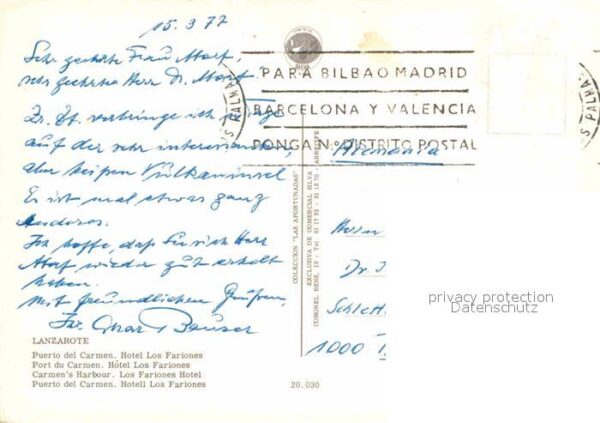 15.9.77
Sehr geehrte Frau Morf,
sehr geehrter Herr Dr. Morf!
Zr. Zt. verbringe ich
auf der sehr interessanten,
heißen Vulkaninsel
Es ist mal etwas ganz
Anderes.
Ich hoffe, daß Sie sich Herr
Morf wieder gut erholt
haben.
Mit freundlichen Grüßen,
Ihr
LANZAROTE
Puerto del Carmen. Hotel Los Fariones
Port du Carmen. Hôtel Los Fariones
Carmen's Harbour. Los Fariones Hotel
Puerto del Carmen. Hotell Los Fariones
COLECCION "LAS AFORTUNADAS"
EXCLUSIVA DE COMERCIAL SILVA
CORONEL BENS, 19 - Tel. 81 17 93 - 81 16 70 - ARRECIFE
20.030
PARA BILBAO MADRID
BARCELONA Y VALENCIA
PONGA Nº DISTRITO POSTAL
S PALMA
S PALMA
Alemania
Herrn
Dr.
1000
privacy protection
Datenschutz